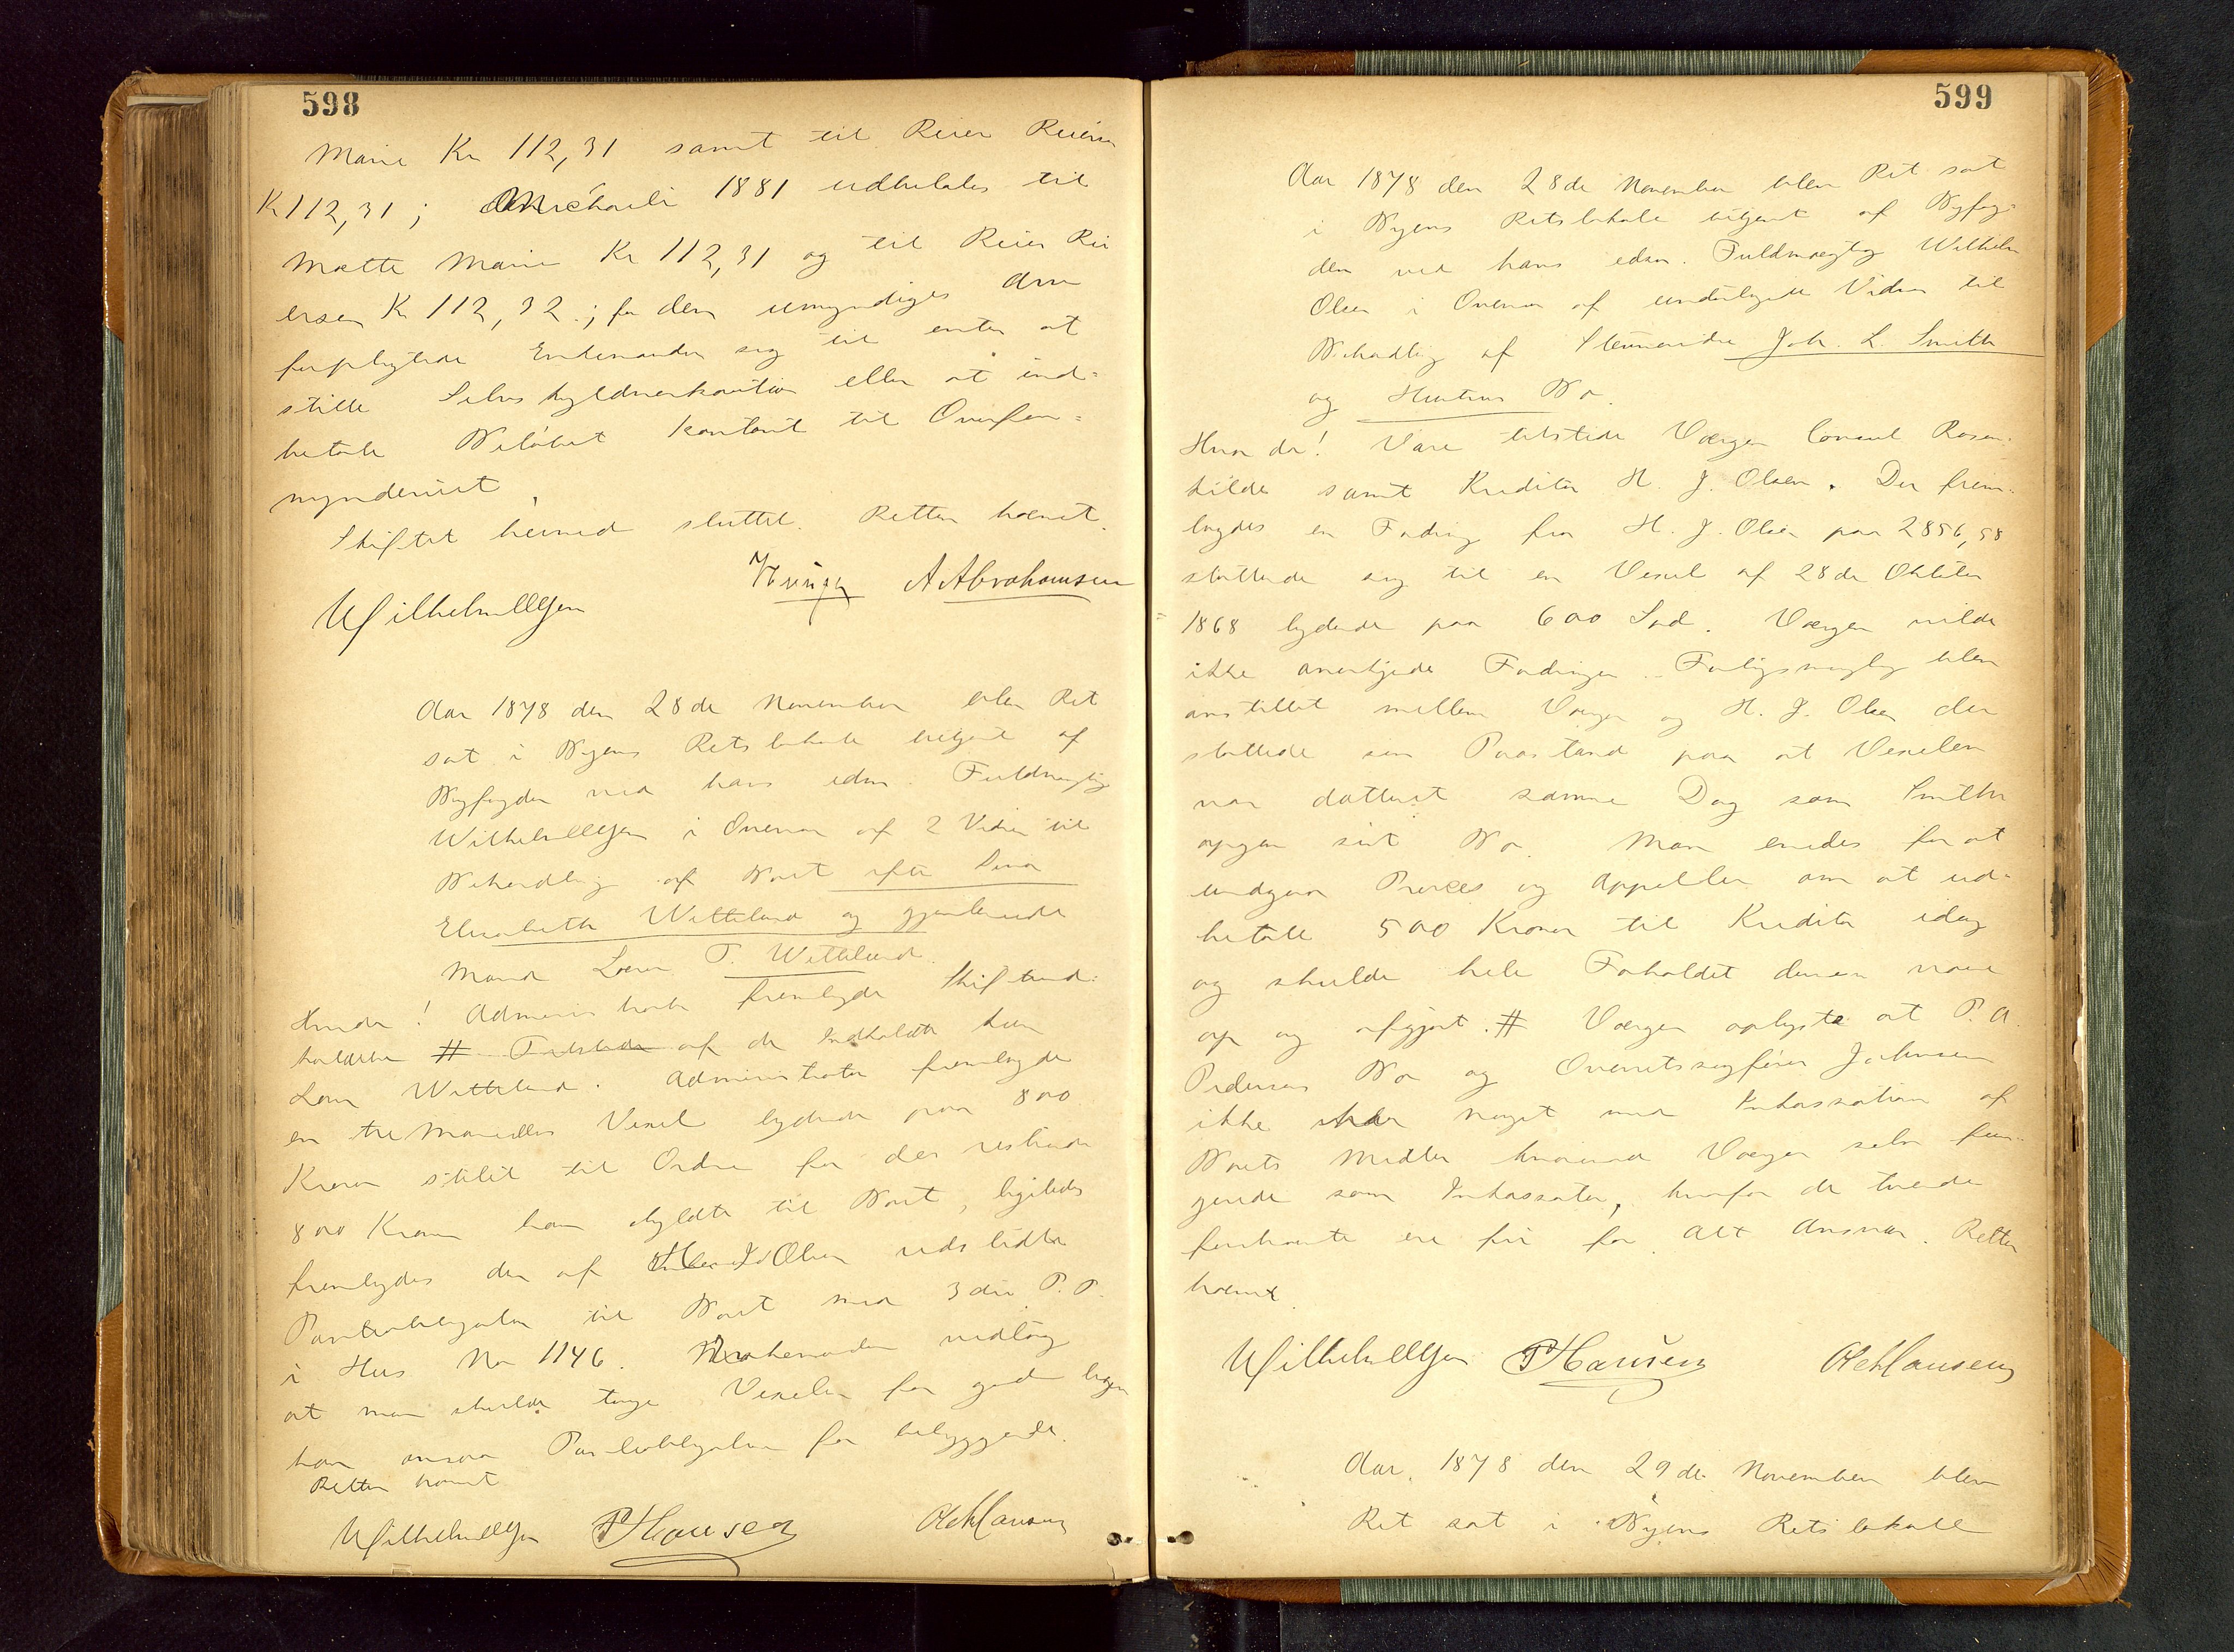 598
Marie Kr 112,31 samt til Reier Reiersen
Kr 112,31; Michaeli 1881 udbetales til
Mætte Marie Kr 112,31 og til Reier Rei
ersen Kr 112,32; for den umyndiges Arv
forpligtede Enkemanden sig til enten at
stille Selvskyldnerkaution eller at ind-
betale Beløbet kontant til Overfor-
mynderiet
Skiftet hermed sluttet. Retten hævet.
A Abrahamsen
Wilhelm Olsen
Aar 1878 den 28de November blev Ret
sat i Byens Retslokale betjent af
Byfogden ved hans edsv. Fuldmægtig
Wilhelm Olsen i Overvær af 2 Vidner til
Behandling af Boet efter
Elisabeth Witteland og gjenlevende
Mand Lars T. Witteland.
Hvorda! Administrator fremlagde Skiftind-
kaldelse # Tilstede af de Indkaldte kun
Lars Witteland. Administrator fremlagde
en tre Maaneders Vexel lydende paa 800
Kroner stilet til Ordre for de resterende
800 Kroner han skyldte til Boet, ligeledes
fremlagdes den af Olsen udstedte
Panteobligation til Boet med 3die P. P.
i Hus No 1146. vedtog
at man skulde tage Vexelen for god
han ansaa Panteobligation for betryggende.
Retten hævet
Wilhelm Olsen P Hansen Ole Hansen
599
Aar 1878 den 28de November blev Ret sat
i Byens Retslokale betjent af Byfog-
den ved hans edsv. Fuldmægtig Wilhelm
Olsen i Overvær af undertegnede Vidner til
Behandling af Joh. L. Smith
og Hustrus Bo.
Hvor da! Vare tilstede Værgen Consul Rosen-
kilde samt Kreditor H. J. Olsen. Der frem-
lagdes en Fordring fra H. J. Olsen paa 2856,58
støttende sig til en Vexel af 28de Oktober
1868 lydende paa 600 Spd. Værgen vilde
ikke anerkjende Fordringen. Forligsmægling blev
anstillet mellem Værgen og H. J. Olsen der
støttede sin Paastand paa at Vexelen
var datteret samme Dag som Smith
opgav sit Bo. Man enedes for at
undgaa Proces og Appeller om at ud-
betale 500 Kroner til Kreditor idag
og skulde hele Forholdet dermed være
op og afgjort. # Værgen oplyste at P. A.
Pedersens Bo og Overretssagfører Johnsen
ikke har noget med Inkassation af
Boets Midler hvorimod Værgen selv fun-
gerede som Inkassator, hvorfor de tvende
førstnævnte ere fri for Alt Ansvar. Retten
hævet.
Wilhelm Olsen P Hansen Ole Hansen
Aar 1878 den 29de November blev
Ret sat i Byens Retslokale